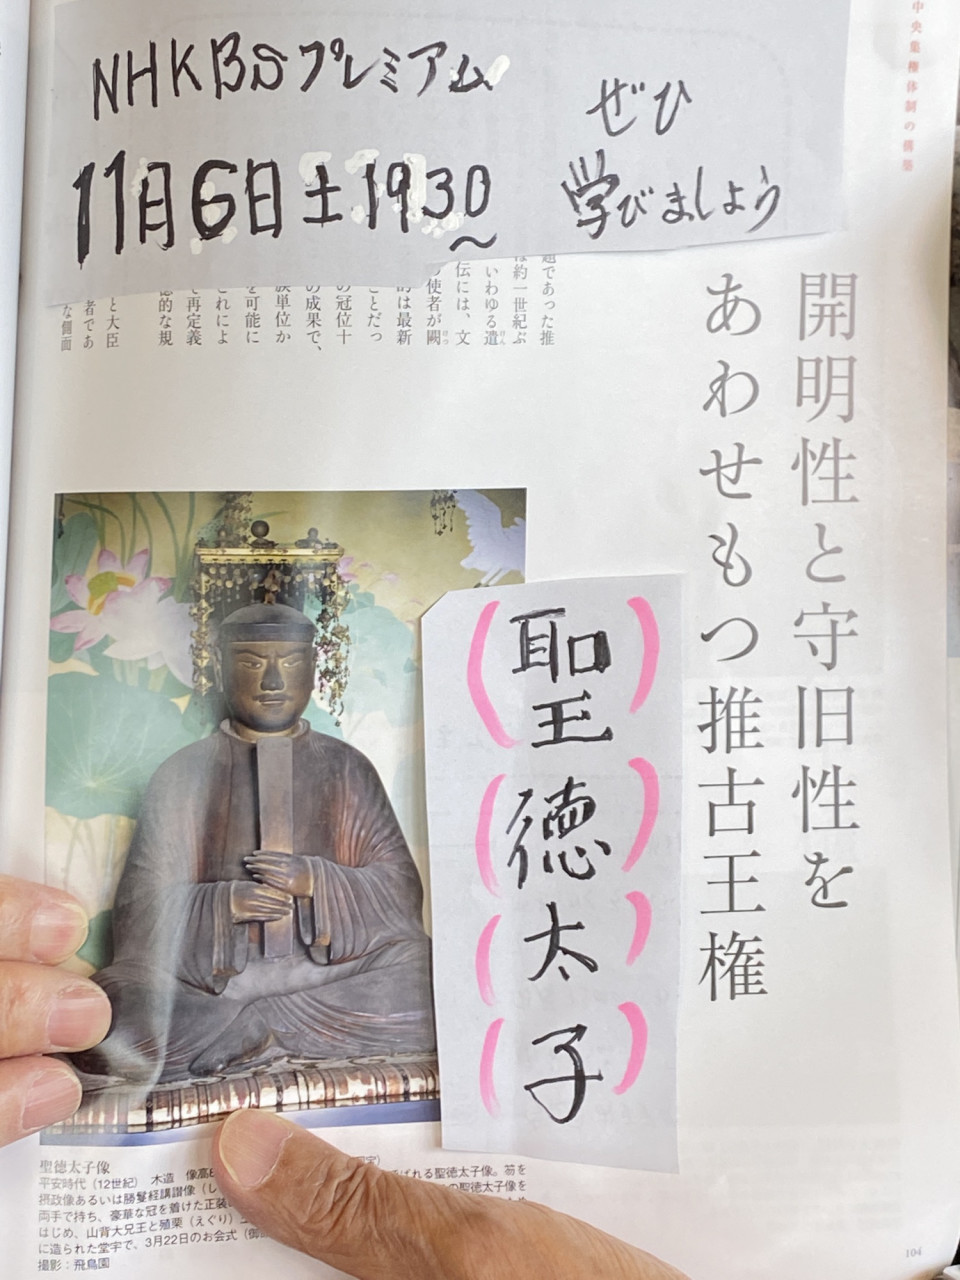 NHKBSプレミアム
11月6日土1930〜
ぜひ
学びましょう
中央集権体制の構築
開明性と守旧性を
あわせもつ推古王権
題であった推
は約一世紀ぶ
いわゆる遣
伝には、文
の使者が闕
的は最新
ことだっ
の冠位十
の成果で、
族単位か
を可能に
これによ
で再定義
徳的な規
と大臣
者であ
な側面
(聖)
(徳)
(太)
(子)
聖徳太子像
平安時代(12世紀) 木造 像高
ばれる聖徳太子像。笏を
摂政像あるいは勝鬘経講讃像(し
の聖徳太子像を
両手で持ち、豪華な冠を着けた正装
はじめ、山背大兄王と殖栗(えぐり)
に造られた堂宇で、3月22日のお会式(御
撮影:飛鳥園
104